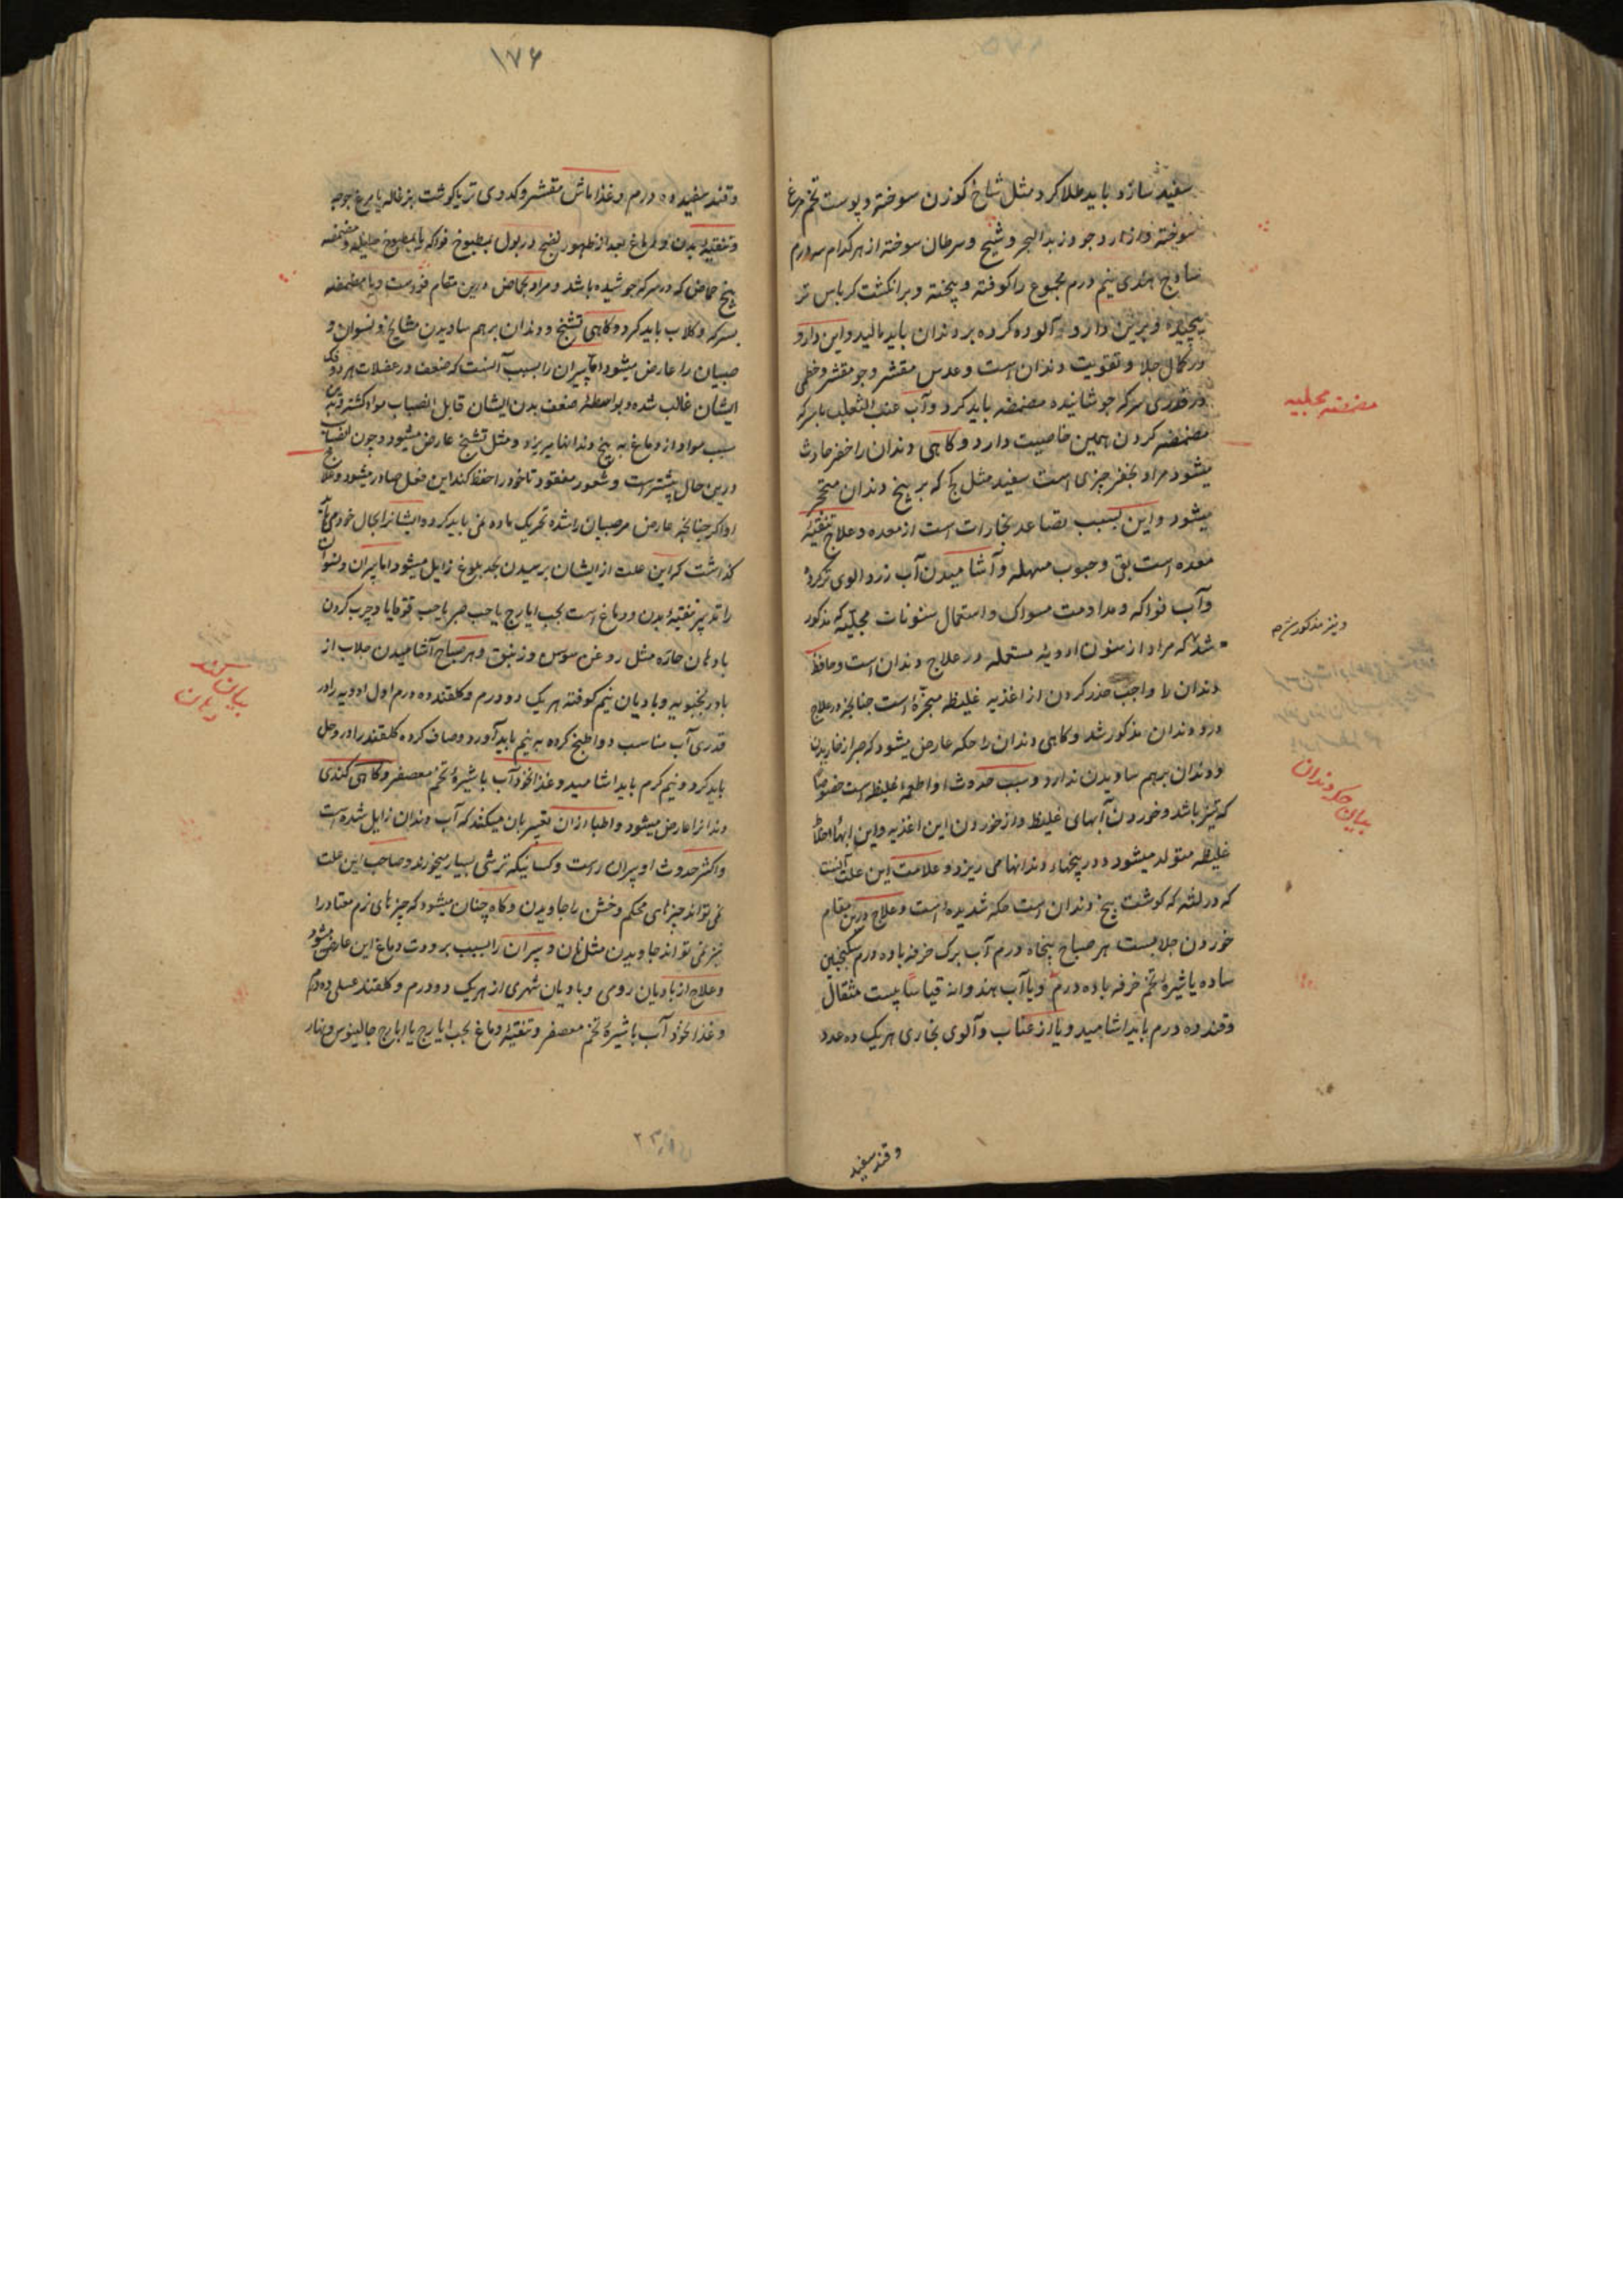 سفید سازد باید طلا کرد مثل شاخ کوزن سوخته و پوست تخم مرغ
سوخته و از آرد جو و زبد البحر و شیح و سرطان سوخته از هر کدام سه درم
ساذج هندی نیم درم مجموع را کوفته و بیخته و بر انکشت کرباس تر
پیچیده و برین دارو آلوده کرده بر دندان باید مالید و این دارو
در کمال جلا و تقویت دندان است و عدس مقشر و جو مقشر و خطمی
در قدری سرکه جوشانیده مضمضه باید کرد و آب عنب الثعلب با سرکه
مضمضه کردن همین خاصیت دارد و کاهی دندان را حفر حادث
میشود مراد بحفر چیزی است سفید مثل کج که بر بیخ دندان متحجر
میشود و این بسبب تصاعد بخارات است از معده و علاج تنقیه
معده است بقی و حبوب مسهله و آشامیدن آب زردالوی تر کرده
وآب فواکه و مداومت مسواک و استعمال سنونات مجلیه که مذکور
شد که مراد از سنون ادویه مستعمله در علاج دندان است و حافظ
دندان را واجب حذر کردن از اغذیه غلیظه مبخره است چنانچه در علاج
درد دندان مذکور شد و کاهی دندان را حکه عارض میشود که صبر از خاریدن
و دندان بهم ساویدن ندارد و سبب حدوث او اطعمه غلیظه است خصوصا
که تیز باشد و خوردن آبهای غلیظ و از خوردن این اغذیه و این آبها اخلاط
غلیظه متولد میشود و در بیخهاء دندانها می ریزد و علامت این علت آنست
که در لثه که کوشت بیخ دندان است حکه شدیده است و علاج درین مقام
خوردن جلابست هر صباح پنجاه درم آب برک خرفه با ده درم سکنجبین
ساده یا شیره تخم خرفه با ده درم و یا آب هندوانه قیاسا بیست مثقال
و قند ده درم باید اشامید و یا از عناب و آلوی بخاری هر یک ده عدد
وقند سفید
مضمضه مجلیه
و نیز مذکور شد
بیان حکه دندان
۱۷۶
و قند سفید ده درم و غذا ماش مقشر و کدوی تر یا کوشت بزغاله یا مرغ جوجه
و تنقیه بدن و دماغ بعد از ظهور نضج در بول بمطبوخ فواکه یا بمطبوخ هلیله و مضمضه
بیخ حماض که در سرکه جوشیده باشد و مراد بحماض درین مقام ترشست و یا مضمضه
بسرکه و کلاب باید کرد و کاهی تشنج و دندان برهم ساویدن مشایخ و نسوان و
صبیان را عارض میشود اما پیران را بسبب آنست که ضعف در عضلات هر دو فک
ایشان غالب شده و بواسطه ضعف بدن ایشان قابل انصباب مواد کشته و بدین
سبب مواد از دماغ به بیخ دندانها میریزد و مثل تشنج عارض میشود و چون انصباب
درین حال بیشتر است و شعور مفقود تا خود را حفظ کند این فعل صادر میشود و علاج
او اکر چنانچه عارض مر صبیان را شده تحریک ماده نمی باید کرد و ایشانرا بحال خود می باید
کذاشت که این علت از ایشان برسیدن بحد بلوغ زایل میشود اما پیران و نسوان
را تدبیر تنقیه بدن و دماغ است بحب ایارج یا حب صبر یا حب قوقایا و چرب کردن
بادهان حاره مثل روغن سوسن و زنبق و هر صباح آشامیدن جلاب از
بادرنجبویه و بادیان نیم کوفته هر یک دو درم و کلقند ده درم اول ادویه را در
قدری آب مناسب دوا طبخ کرده به نیم باید آورد و صاف کرده کلقند را درو حل
باید کرد و نیم کرم باید اشامید و غذا نخود آب با شیره تخم معصفر و کاهی کندی
دندانرا عارض میشود و اطبا ازان تعبیر بان میکنند که آب دندان زایل شده است
و اکثر حدوث او پیران راست و کسانیکه ترشی بسیار میخورند و صاحب این علت
نمی تواند چیزهای محکم و خشن را جاویدن و کاه چنان میشود که چیزهای نرم معتاد را
نیز نمی تواند جاویدن مثل نان و پیران را بسبب برودت دماغ این عارض میشود
و علاج از بادیان رومی و بادیان شهری از هر یک دو درم و کلقند عسلی ده درم
و غذا نخود آب با شیره تخم معصفر و تنقیه دماغ بحب ایارج یا ایارج جالینوس و بنار
بیان کند